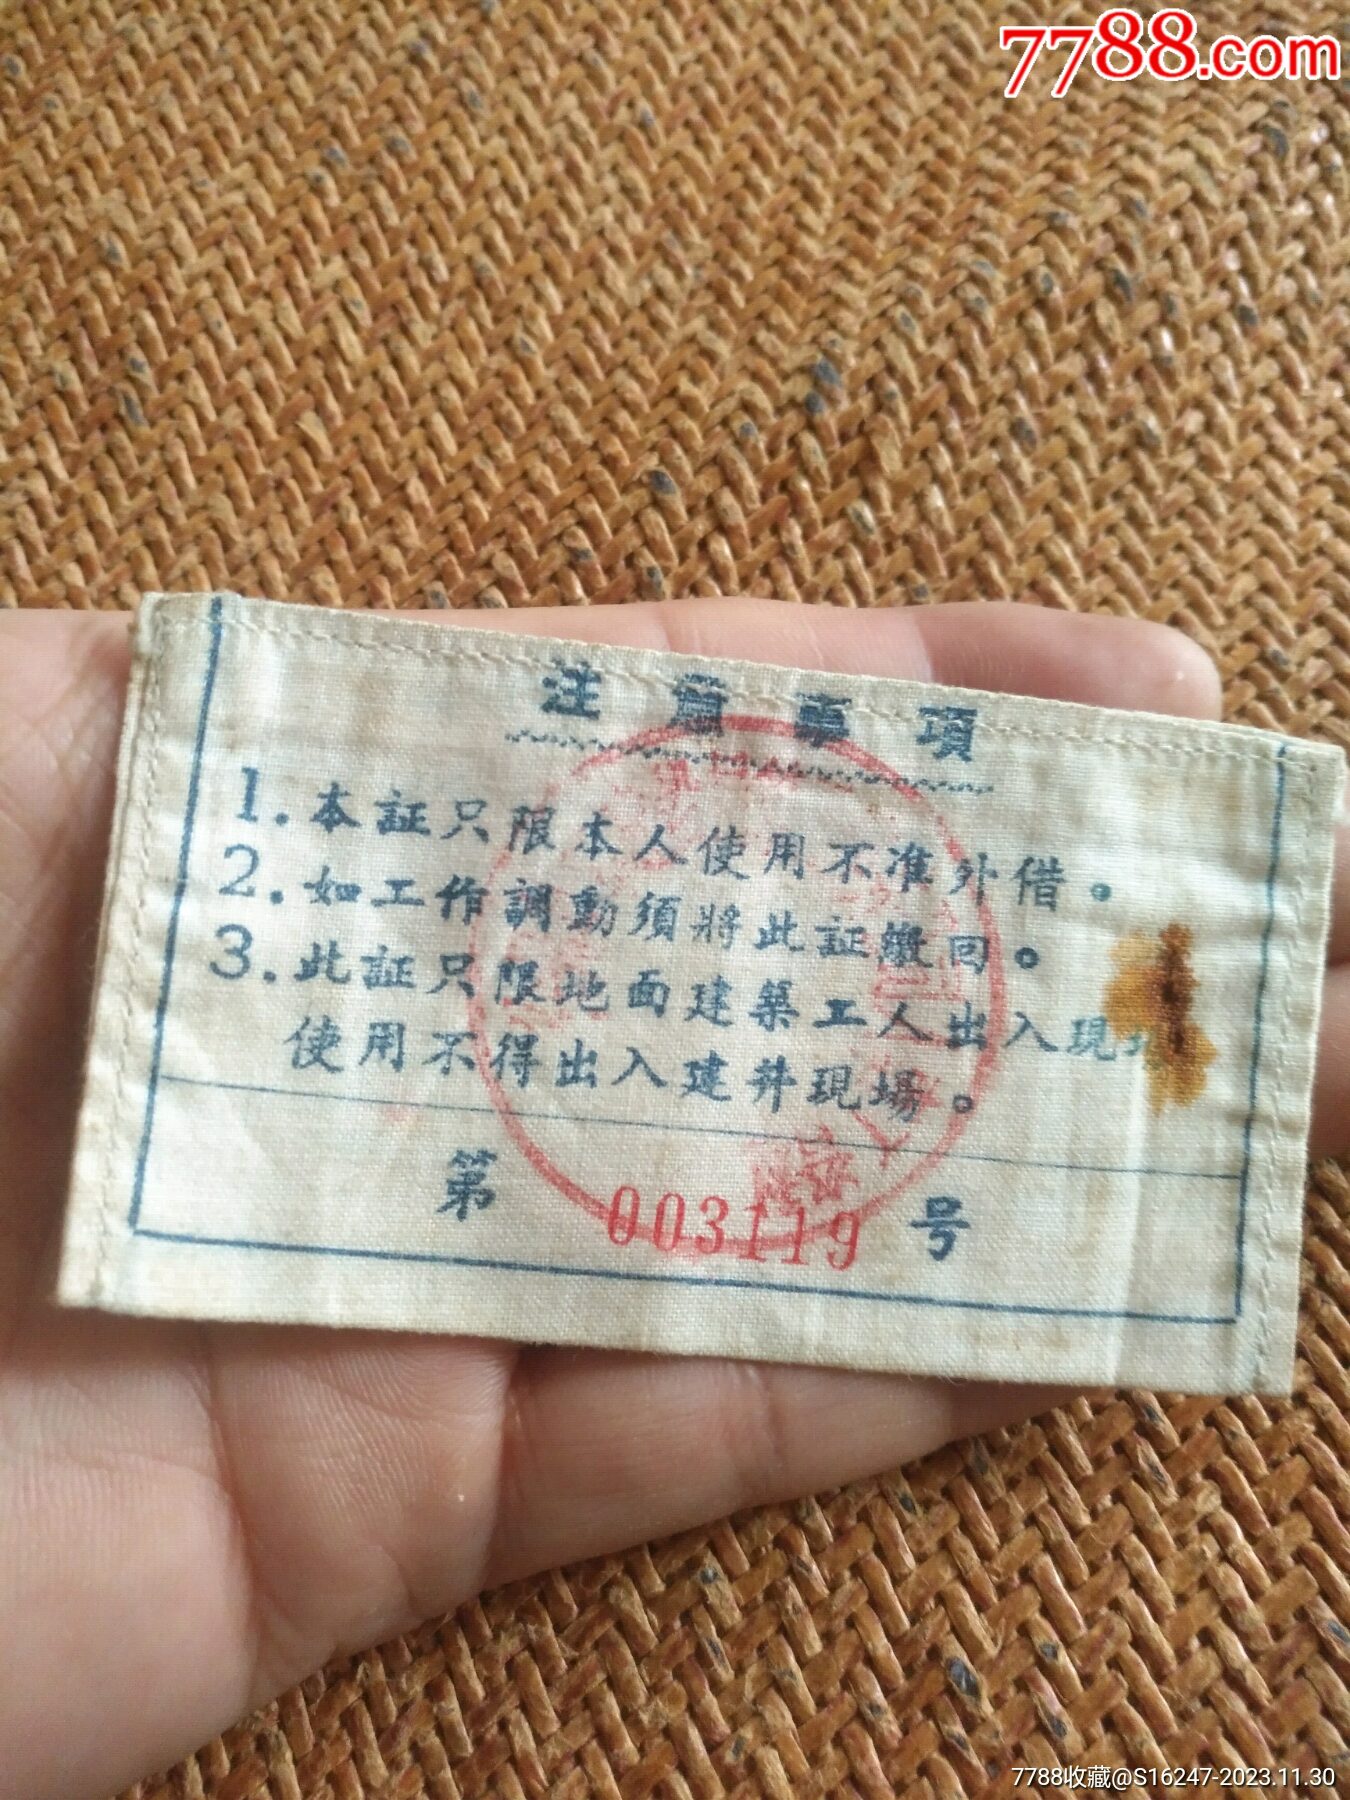 7788.com
注意事項
1.本証只限本人使用不准外借。
2.如工作調動須將此証繳回。
3.此証只限地面建築工人出入現
使用不得出入建井現場。
第 003119 号
7788收藏@S16247-2023.11.30